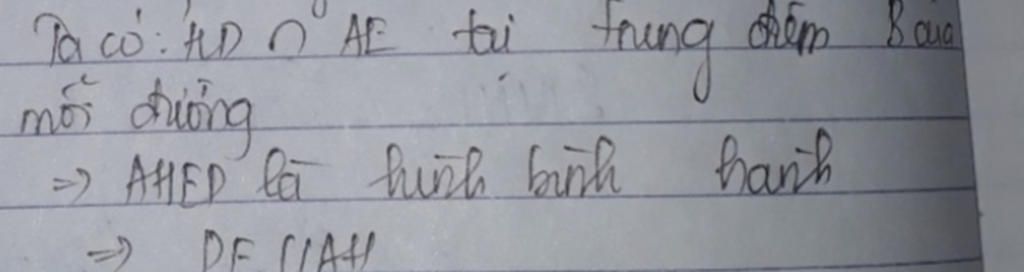 Ta có: HD ∩ AE tại trung điểm B của
mỗi đường
=> AHED là hình bình hành
=> DE // AH